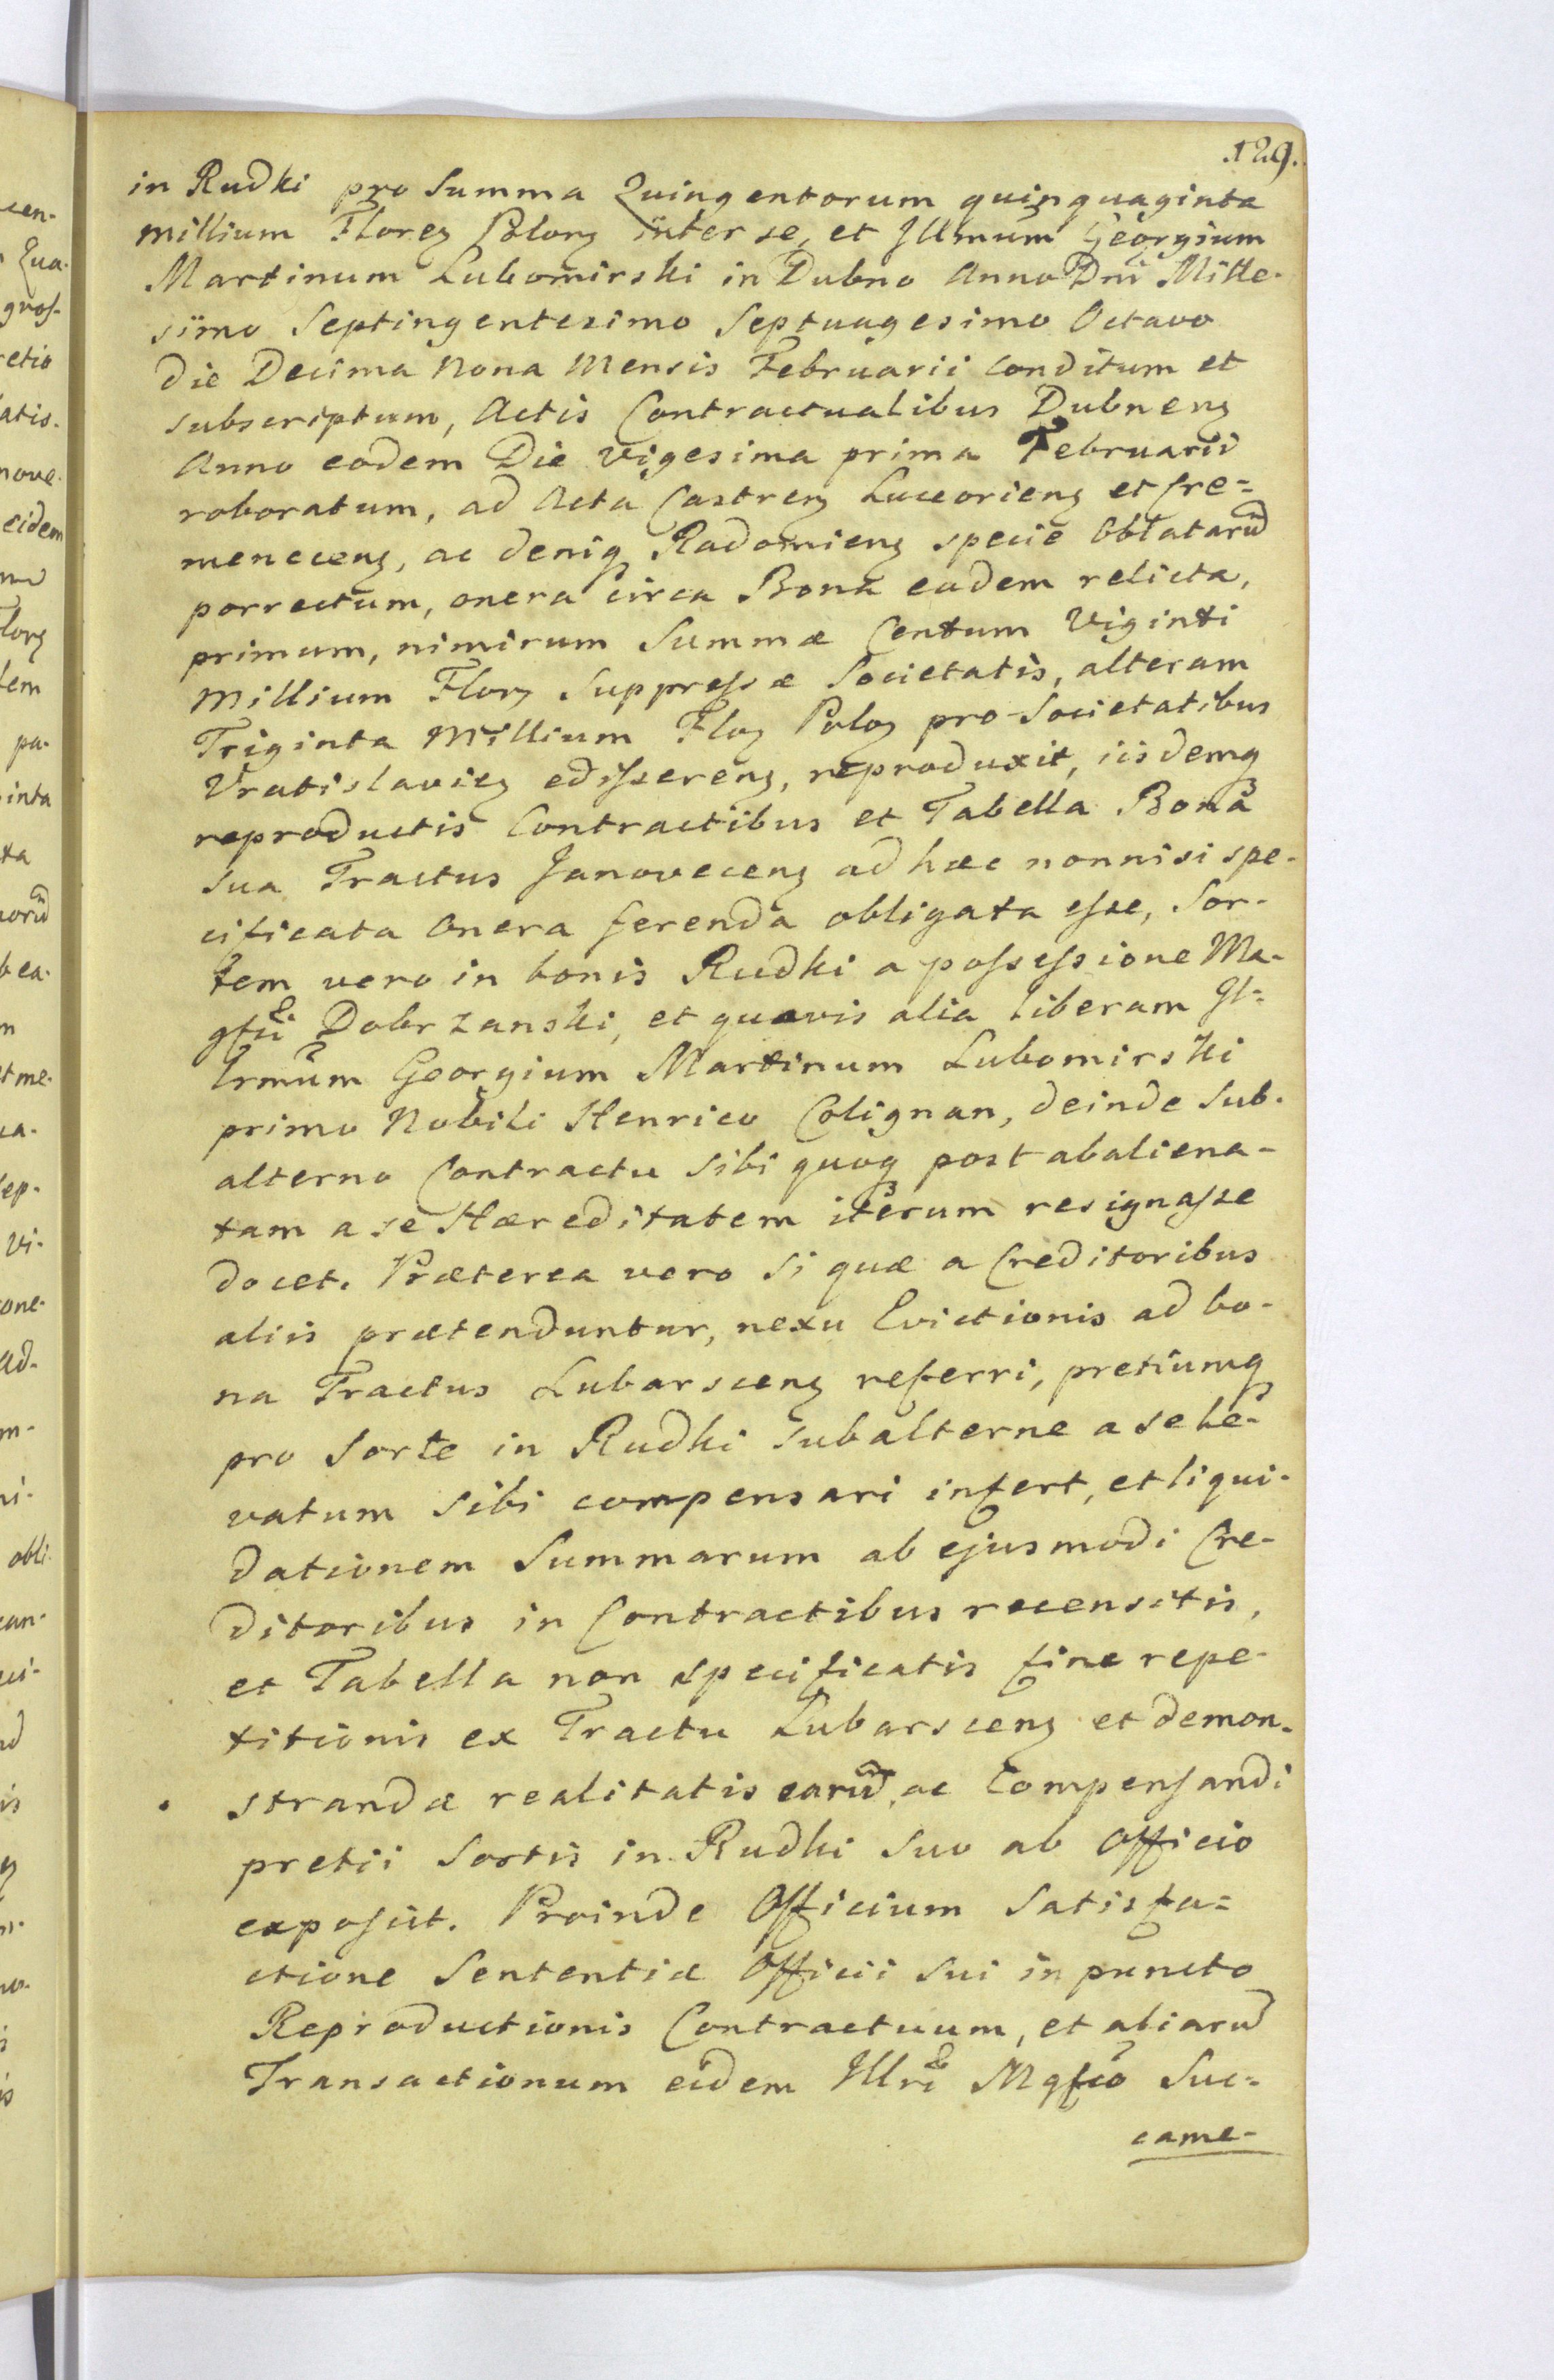 129.
in Rudki pro Summa Quingentorum quinquaginta
millium Floreȝ Polonȝ inter se, et Jllmum Georgium
Martinum Lubomirski in Dubno Anno Dni Mille-
simo Septingentesimo Septuagesimo Octavo
Die Decima Nona Mensis Februarii conditum et
subscriptum, Actis Contractualibus Dubnenȝ
Anno eodem Die vigesima prima Februarii
roboratum, ad Acta Castrenȝ Luceorienȝ et Cre-
menecenȝ, ac deniqȝ Radomienȝ specie Oblatarũ
porrectum, onera circa Bona eadem relicta,
primum, nimirum Summæ Centum Viginti
Millium Florȝ Suppressæ Societatis, alteram
Triginta Millium Floȝ Poloȝ pro Societatibus
Vratislavieȝ edisserenȝ, reproduxit, iisdemqȝ
reproductis Contractibus et Tabella Bona
sua Tractus Janovecenȝ ad hæc nonnisi spe-
cificata Onera ferenda obligata esse, Sor-
tem vero in bonis Rudki a possessione Ma-
gfci Dobrzanski, et quavis alia liberam Jl-
lrmum Georgium Martinum Lubomirski
primo Nobili Henrico Colignan, deinde Sub-
alterno Contractu Sibi quoqȝ post abaliena-
tam a se Hæreditatem iterum resignasse
docet. Præterea vero si quæ a Creditoribus
aliis prætenduntur, nexu Evictionis ad bo-
na Tractus Lubarscenȝ referri, pretiumqȝ
pro Sorte in Rudki subalterne a se le-
vatum sibi compensari infert, et liqui-
dationem Summarum ab ejusmodi Cre-
ditoribus in Contractibus recensitis,
et Tabella non specificatis fine repe-
titionis ex Tractu Lubarscenȝ et demon-
strandæ realitatis earũ, ac Compensandi
pretii Sortis in Rudki suo ab Officio
exposcit. Proinde Officium Satisfa-
ctione Sententiæ Officii sui in puncto
Reproductionis Contractuum, et aliarũ
Transactionum eidem Illri Mgfco Suc-
came-